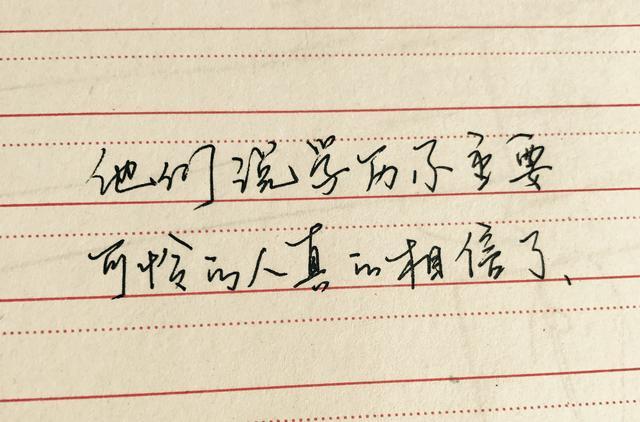 他们说学历不重要
可怜的人真的相信了、